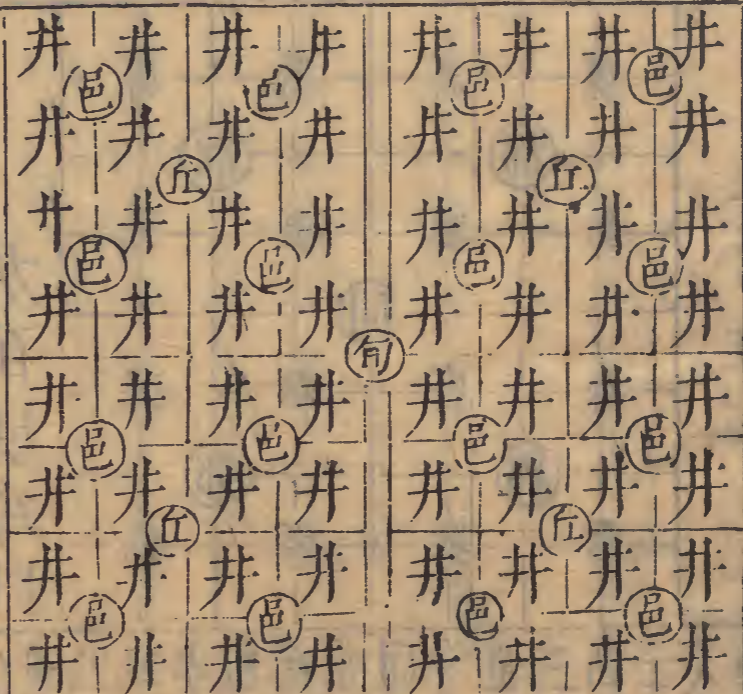 井井井井井井井井
邑邑邑邑
井井井井井井井井
丘丘
井井井井井井井井
邑邑邑邑
井井井井井井井井
甸
井井井井井井井井
邑邑邑邑
井井井井井井井井
丘丘
井井井井井井井井
邑邑邑邑
井井井井井井井井